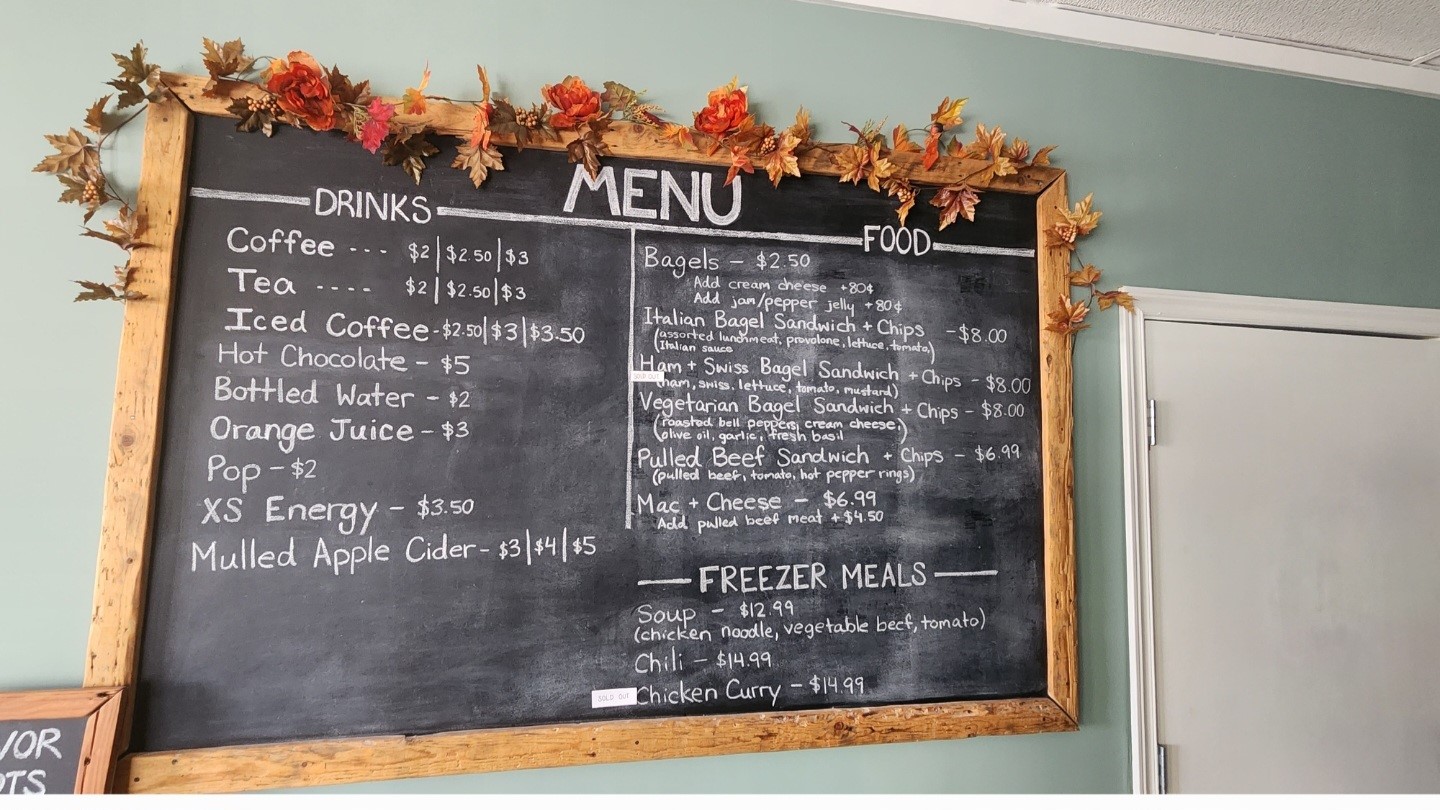 MENU
DRINKS
Coffee --- $2 | $2.50 | $3
Tea ---- $2 | $2.50 | $3
Iced Coffee - $2.50 | $3 | $3.50
Hot Chocolate - $5
Bottled Water - $2
Orange Juice - $3
Pop - $2
XS Energy - $3.50
Mulled Apple Cider - $3 | $4 | $5
FOOD
Bagels - $2.50
Add cream cheese +80¢
Add jam/pepper jelly +80¢
Italian Bagel Sandwich + Chips - $8.00
(assorted lunchmeat, provolone, lettuce, tomato,)
Italian sauce
SOLD OUT
Ham + Swiss Bagel Sandwich + Chips - $8.00
(ham, swiss, lettuce, tomato, mustard)
Vegetarian Bagel Sandwich + Chips - $8.00
(roasted bell peppers, cream cheese,)
olive oil, garlic, fresh basil
Pulled Beef Sandwich + Chips - $6.99
(pulled beef, tomato, hot pepper rings)
Mac + Cheese - $6.99
Add pulled beef meat + $4.50
FREEZER MEALS
Soup - $12.99
(chicken noodle, vegetable beef, tomato)
Chili - $14.99
SOLD OUT
Chicken Curry - $14.99
VOR
OTS